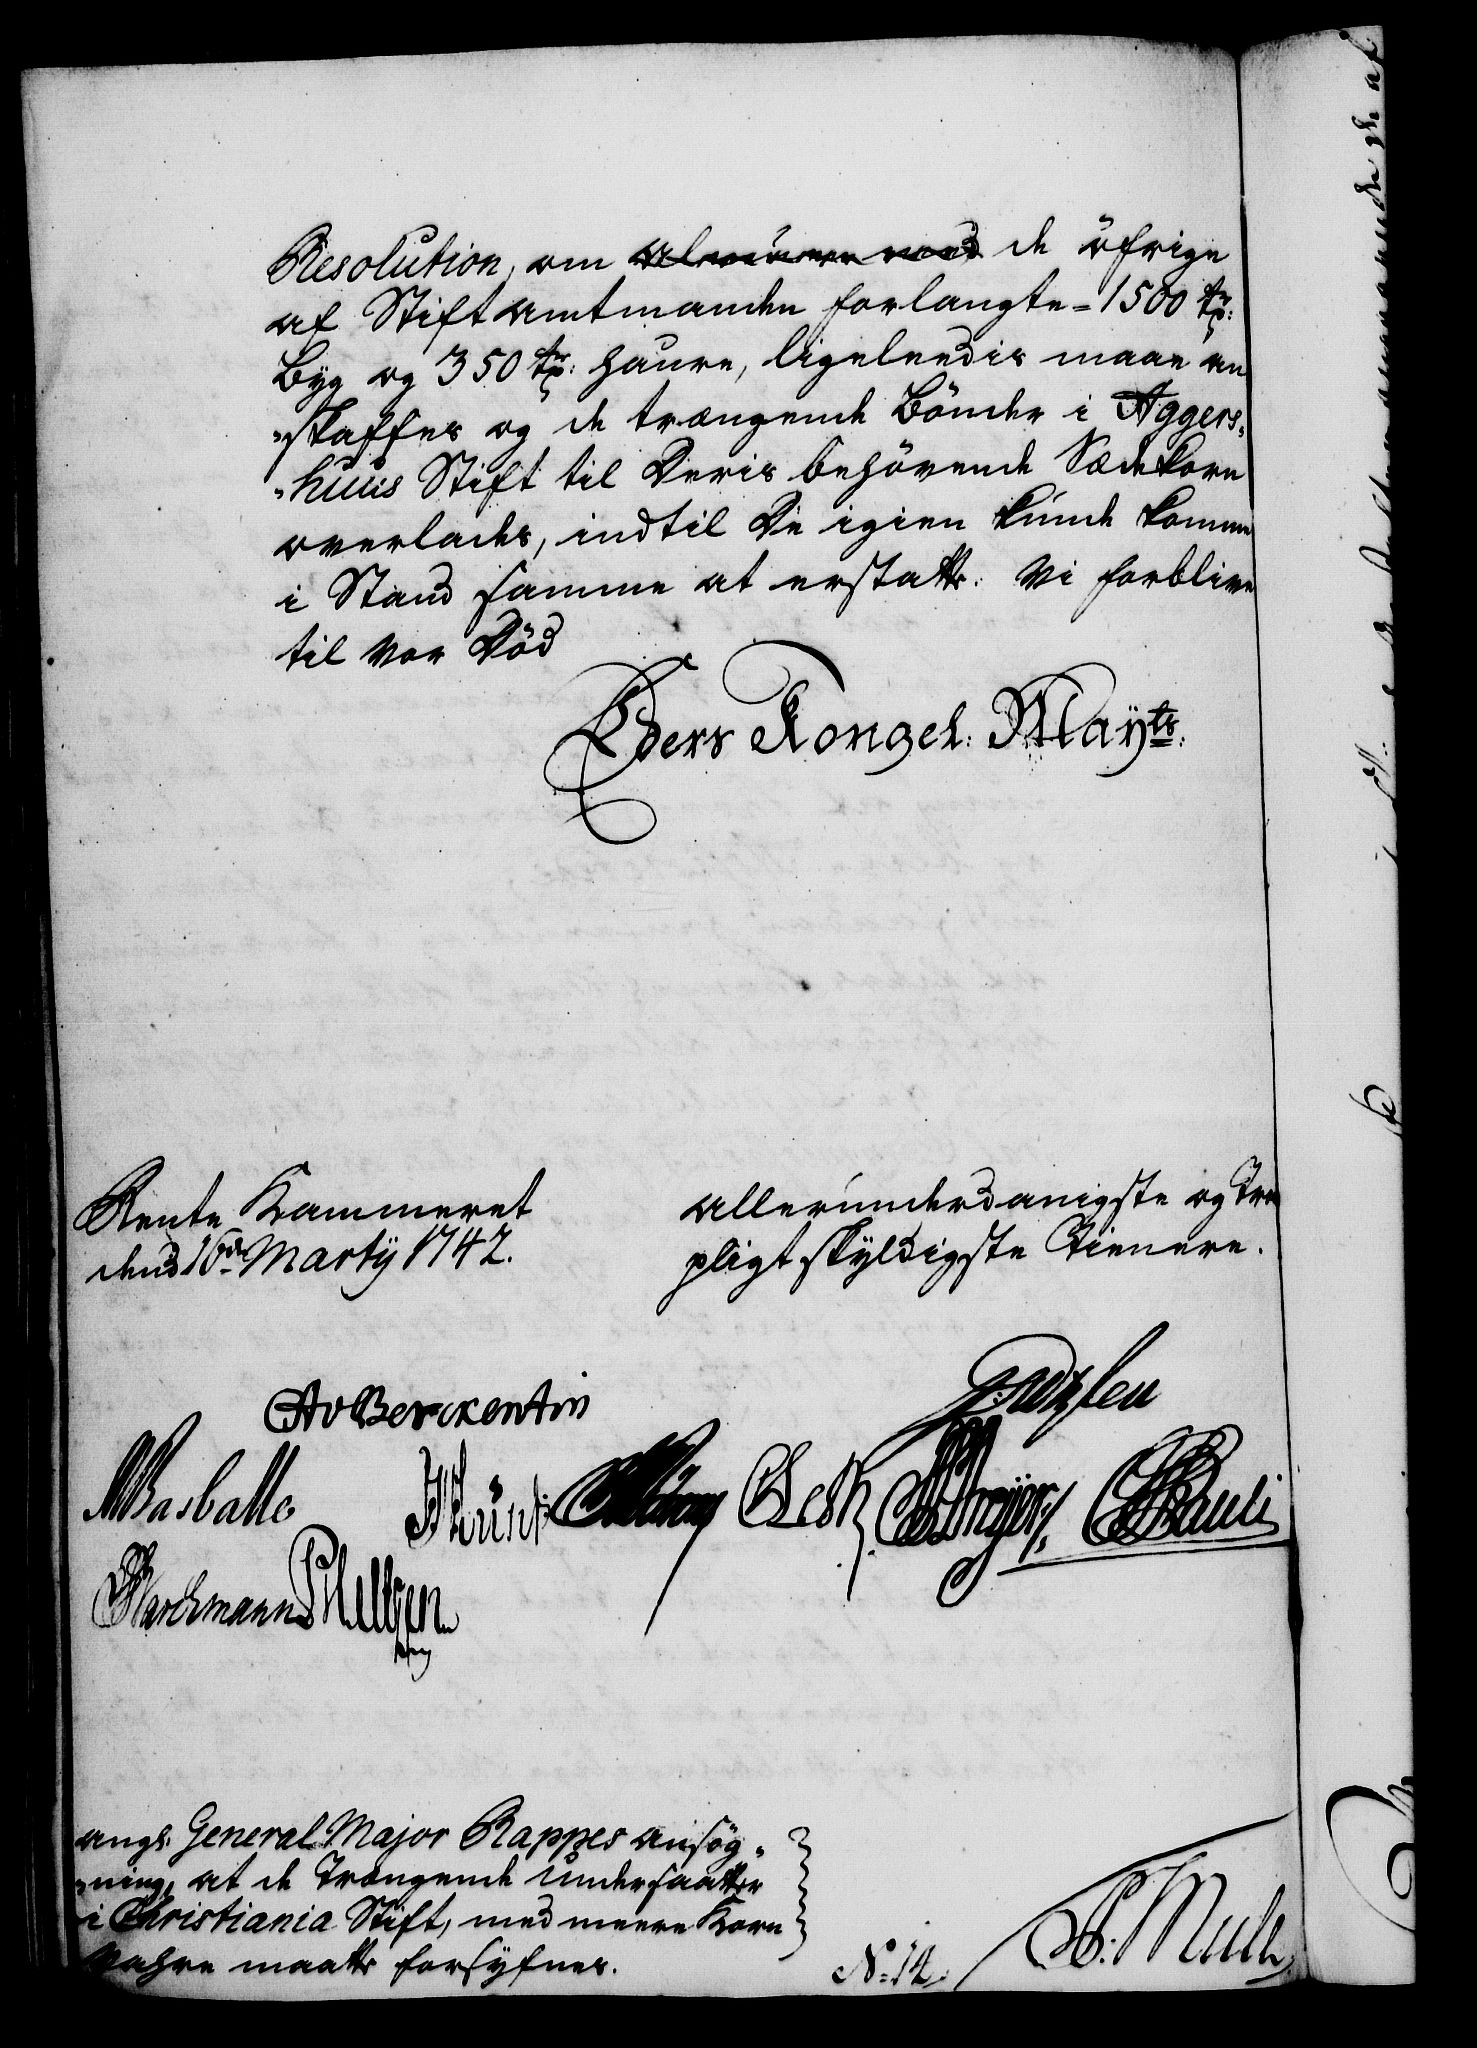 Resolution, om de öfrige
af Stiftamtmanden forlangte = 1500 tr:
Byg og 350 tr: haure, ligeleedis maae an
-skaffes og de trængende Bönder i Aggers-
-huus Stift til Deris behövende Sædekorn
overlades, indtil De igien kunde komme
i Stand samme at erstatte. Vi forblive
til vor Död
Eders Kongel: Mayts:
Rente Kammeret
dend 16de Martÿ 1742.
allerunderdanigste og Troe
pligtskÿldigste Tienere.
AvBerckentin
Barchmann
angl: General Major Rappes ansög-
-ning, at de Trængende Undersaatter
i Christiania Stift, med meere Korn
Vahre maatte forsÿfnes.
N: 12.